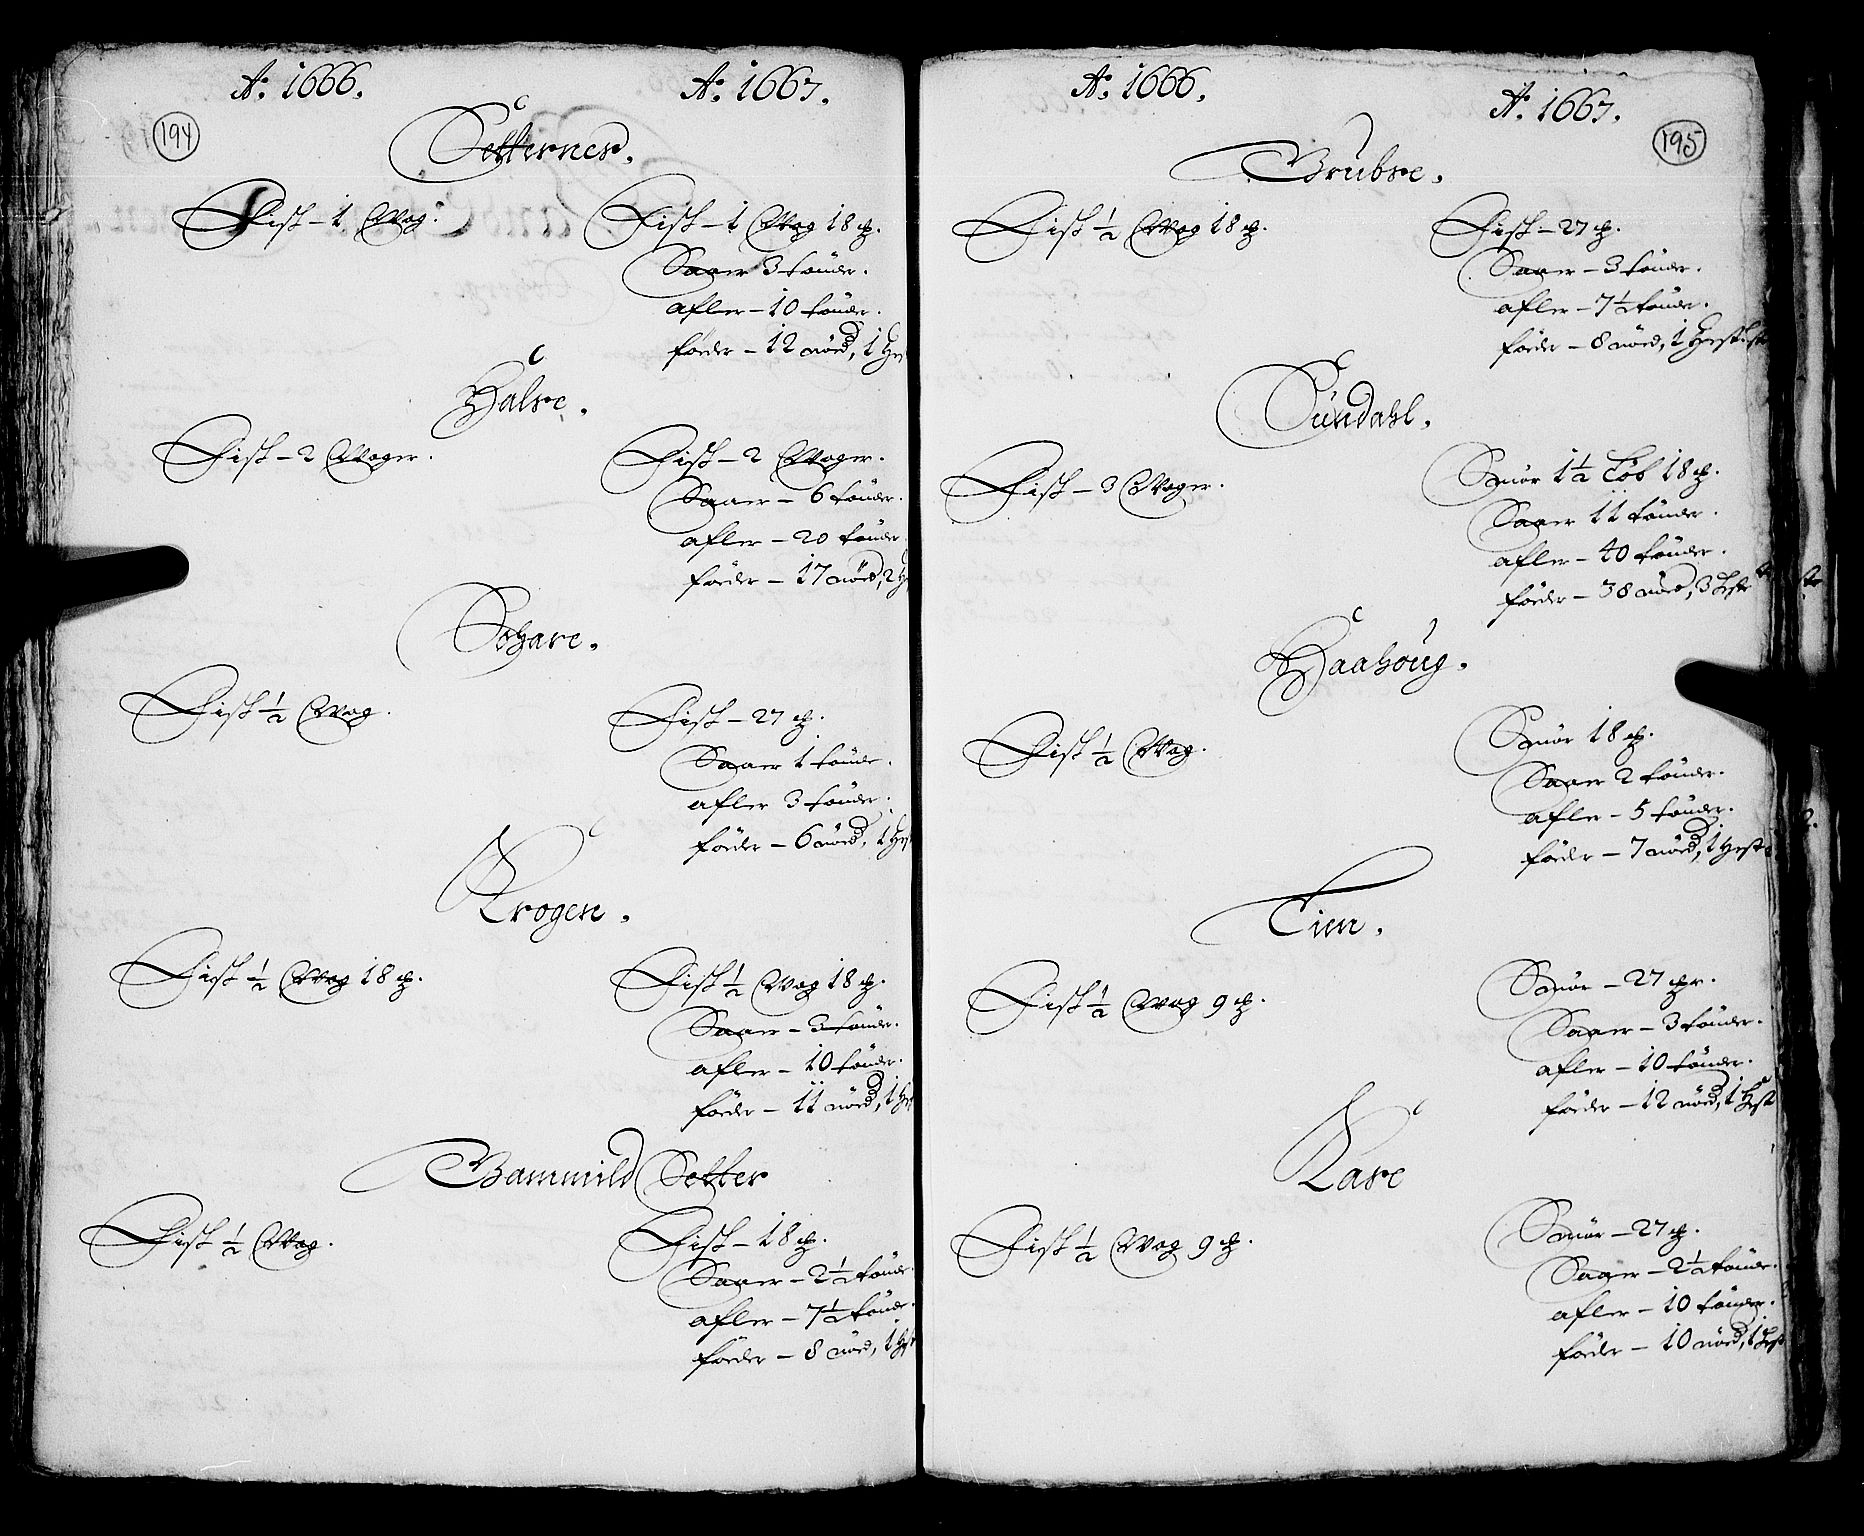 194
Ao. 1666. Ao. 1667.
Setternes.
Fisk – 1 Wog. Fisk – 1 Wog 18 ℔.
Saaer 3 tönder.
afler – 10 tönder.
föder – 12 nöed, 1 Hest
Halse.
Fisk – 2 Woger. Fisk – 2 Woger.
Saaer – 6 tönder.
afler – 20 tönder.
föder – 17 nöed, 2 He
Fisk ½ Wog. Fisk – 27 ℔.
Saaer 1 tönde.
afler 3 tönder.
föder – 6 nöed, 1 Hest
Krogen.
Fisk ½ Wog 18 ℔. Fisk ½ Wog 18 ℔.
Saaer – 3 tönder.
afler – 10 tönder.
föder – 11 nöed, 1 Hest
Gammild Setter
Fisk ½ Wog. Fisk – 18 ℔.
Saaer – 2½ tönder.
afler – 7½ tönder.
föder – 8 nöed, 1 Hest
195
Ao. 1666. Ao. 1667.
Grubse.
Fisk ½ Wog 18 ℔. Fisk – 27 ℔.
Saaer – 3 tönder.
afler – 7½ tönder.
föder – 8 nöed, 1 Hest.
Sundahl.
Fisk – 3 Woger. Smör 1½ Löb 18 ℔.
Saaer 11 tönder.
afler – 40 tönder.
föder – 38 nöed, 3 Heste
Haahoug.
Fisk ½ Wog. Smör 18 ℔.
Saaer 2 tönder.
afler – 5 tönder.
föder – 7 nöed, 1 Hest
Tien.
Fisk ½ Wog 9 ℔. Smör – 27 ℔r.
Saaer – 3 tönder.
afler – 10 tönder.
föder – 12 nöed, 1 Hest
Kase
Fisk ½ Wog 9 ℔. Smör – 27 ℔.
Saaer – 2½ tönder.
afler – 10 tönder.
föder – 10 nöed, 1 Hest